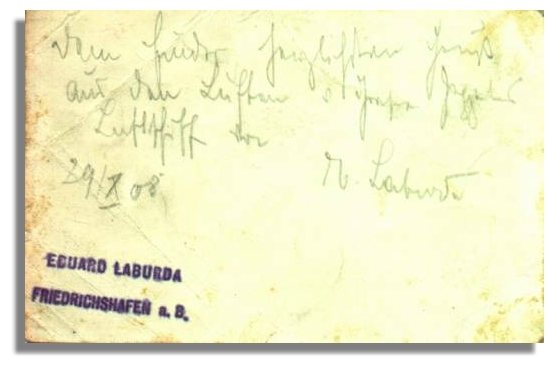 Dem Finder herzlichsten Gruß
aus den Lüften v Grafen Zeppelins
Luftschiff von
29/X 08 M. Laburda
EDUARD LABURDA
FRIEDRICHSHAFEN a. B.